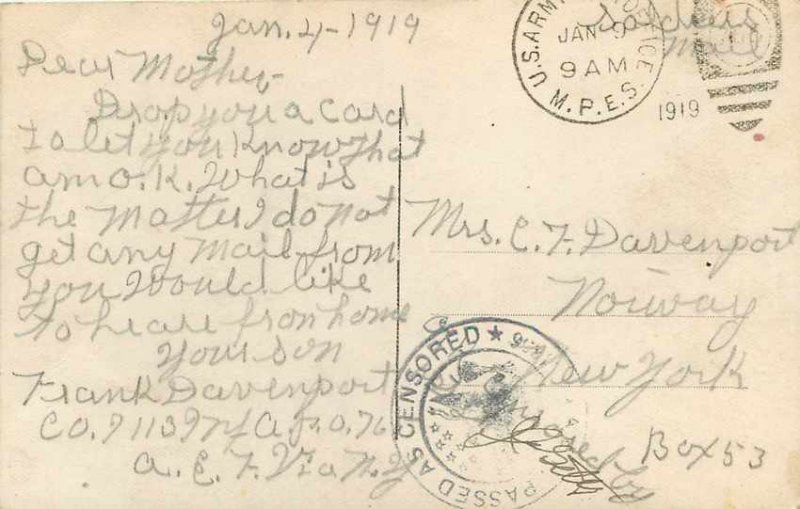 Jan. 4-1919
Dear Mother-
Drop you a card
to let you know that
am o.K. What is
the matter I do not
get any mail from
you Would like
to heare from home
Your son
Frank Davenport
Co. 113 Inf A.P.O. 76
a. E. F. Via N. Y
Soldiers
Mail
U.S. ARMY OFFICE
JAN 9
9 AM
M.P.E.S.
1919
Mrs. C. F. Davenport
Norway
New York
Box 53
PASSED AS CENSORED
Censored by